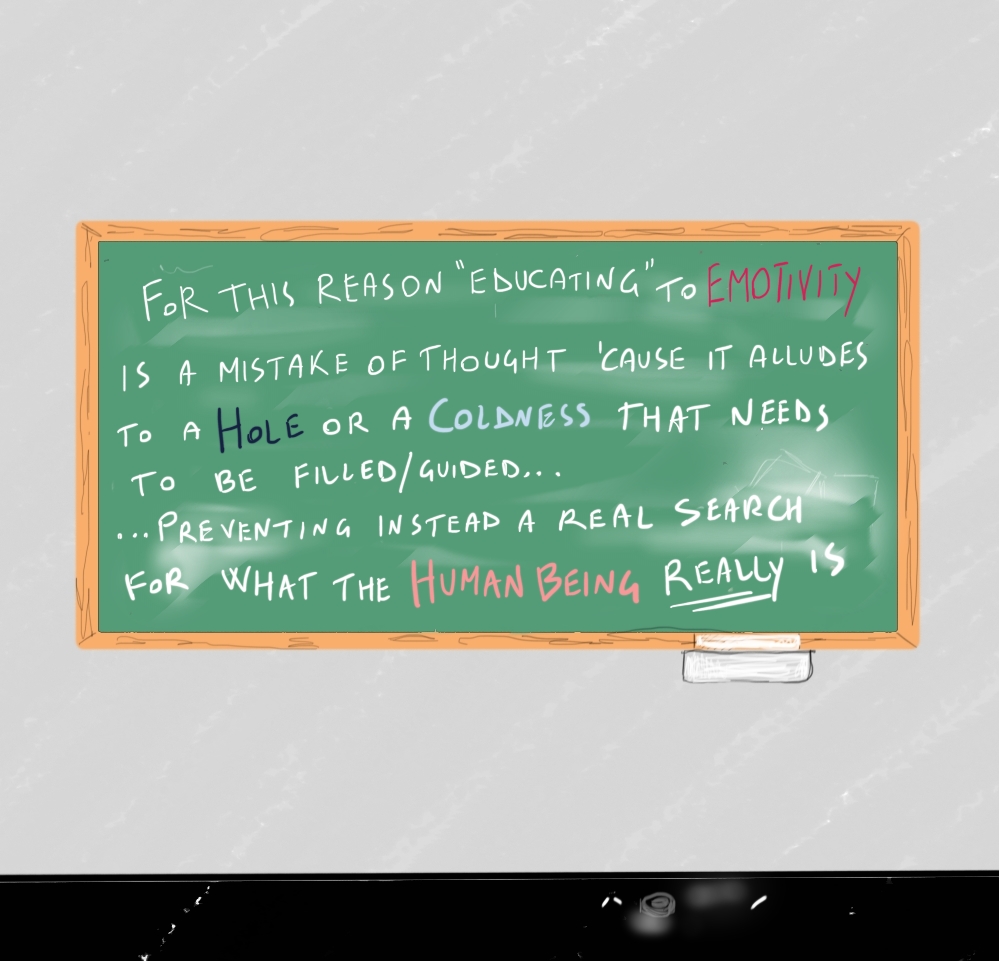 FOR THIS REASON "EDUCATING" TO EMOTIVITY
IS A MISTAKE OF THOUGHT 'CAUSE IT ALLUDES
TO A HOLE OR A COLDNESS THAT NEEDS
TO BE FILLED/GUIDED...
...PREVENTING INSTEAD A REAL SEARCH
FOR WHAT THE HUMAN BEING REALLY IS